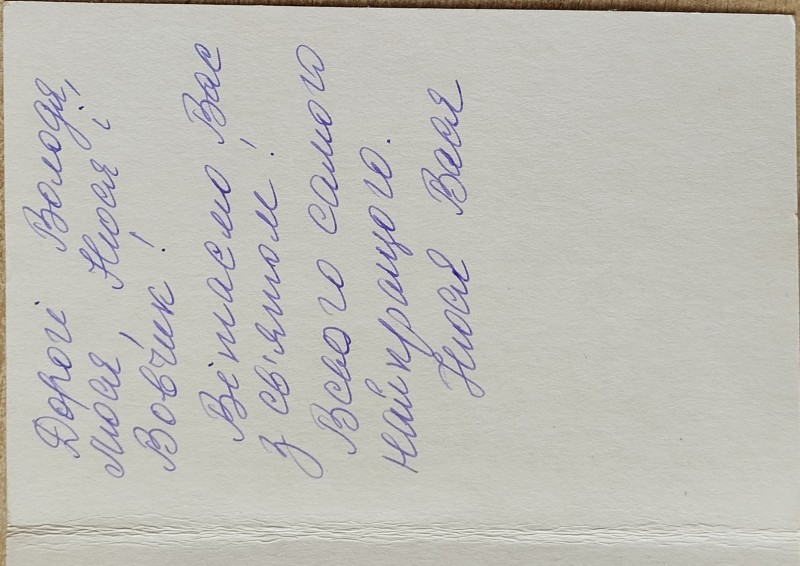 Дорогі Володя,
Люся, Нюся і
Вовчик!
Вітаємо Вас
з св'ятом!
Всього самого
найкращого.
Нюся Вася